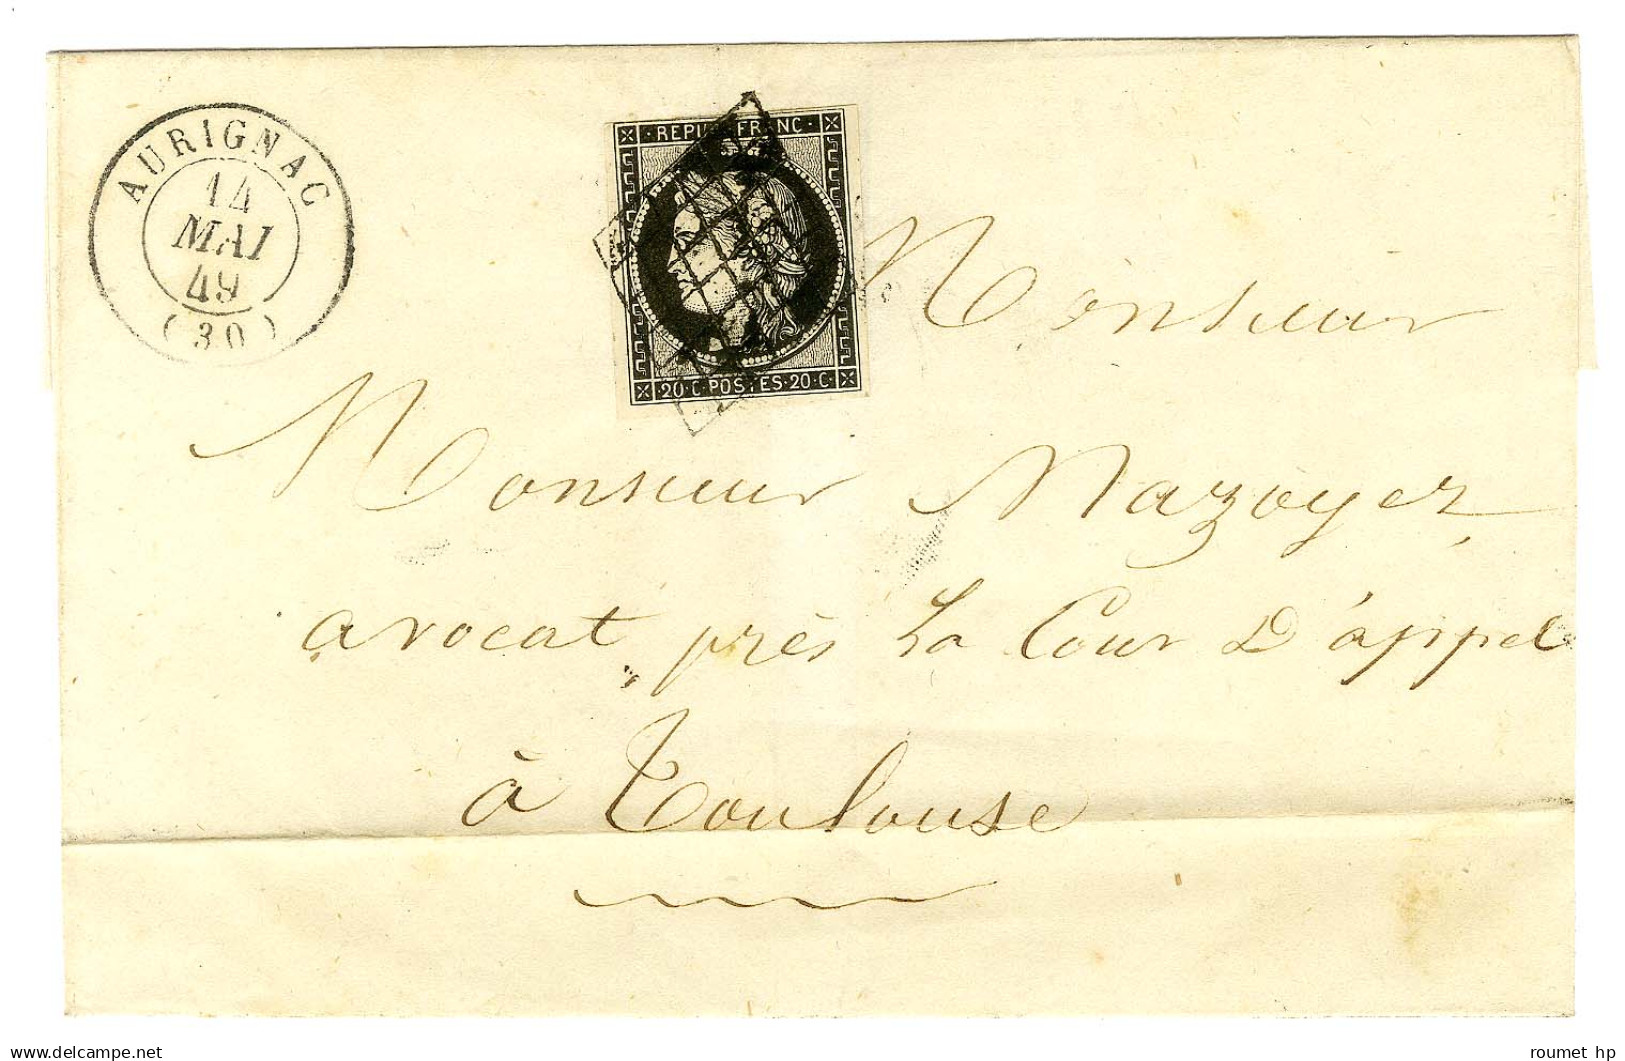 AURIGNAC
14
MAI
49
(30)
REPUB FRANC
20·C·POSTES·20·C·
Monsieur
Monsieur Mazoyer,
avocat près la Cour D'appel
à Toulouse
roumet hp